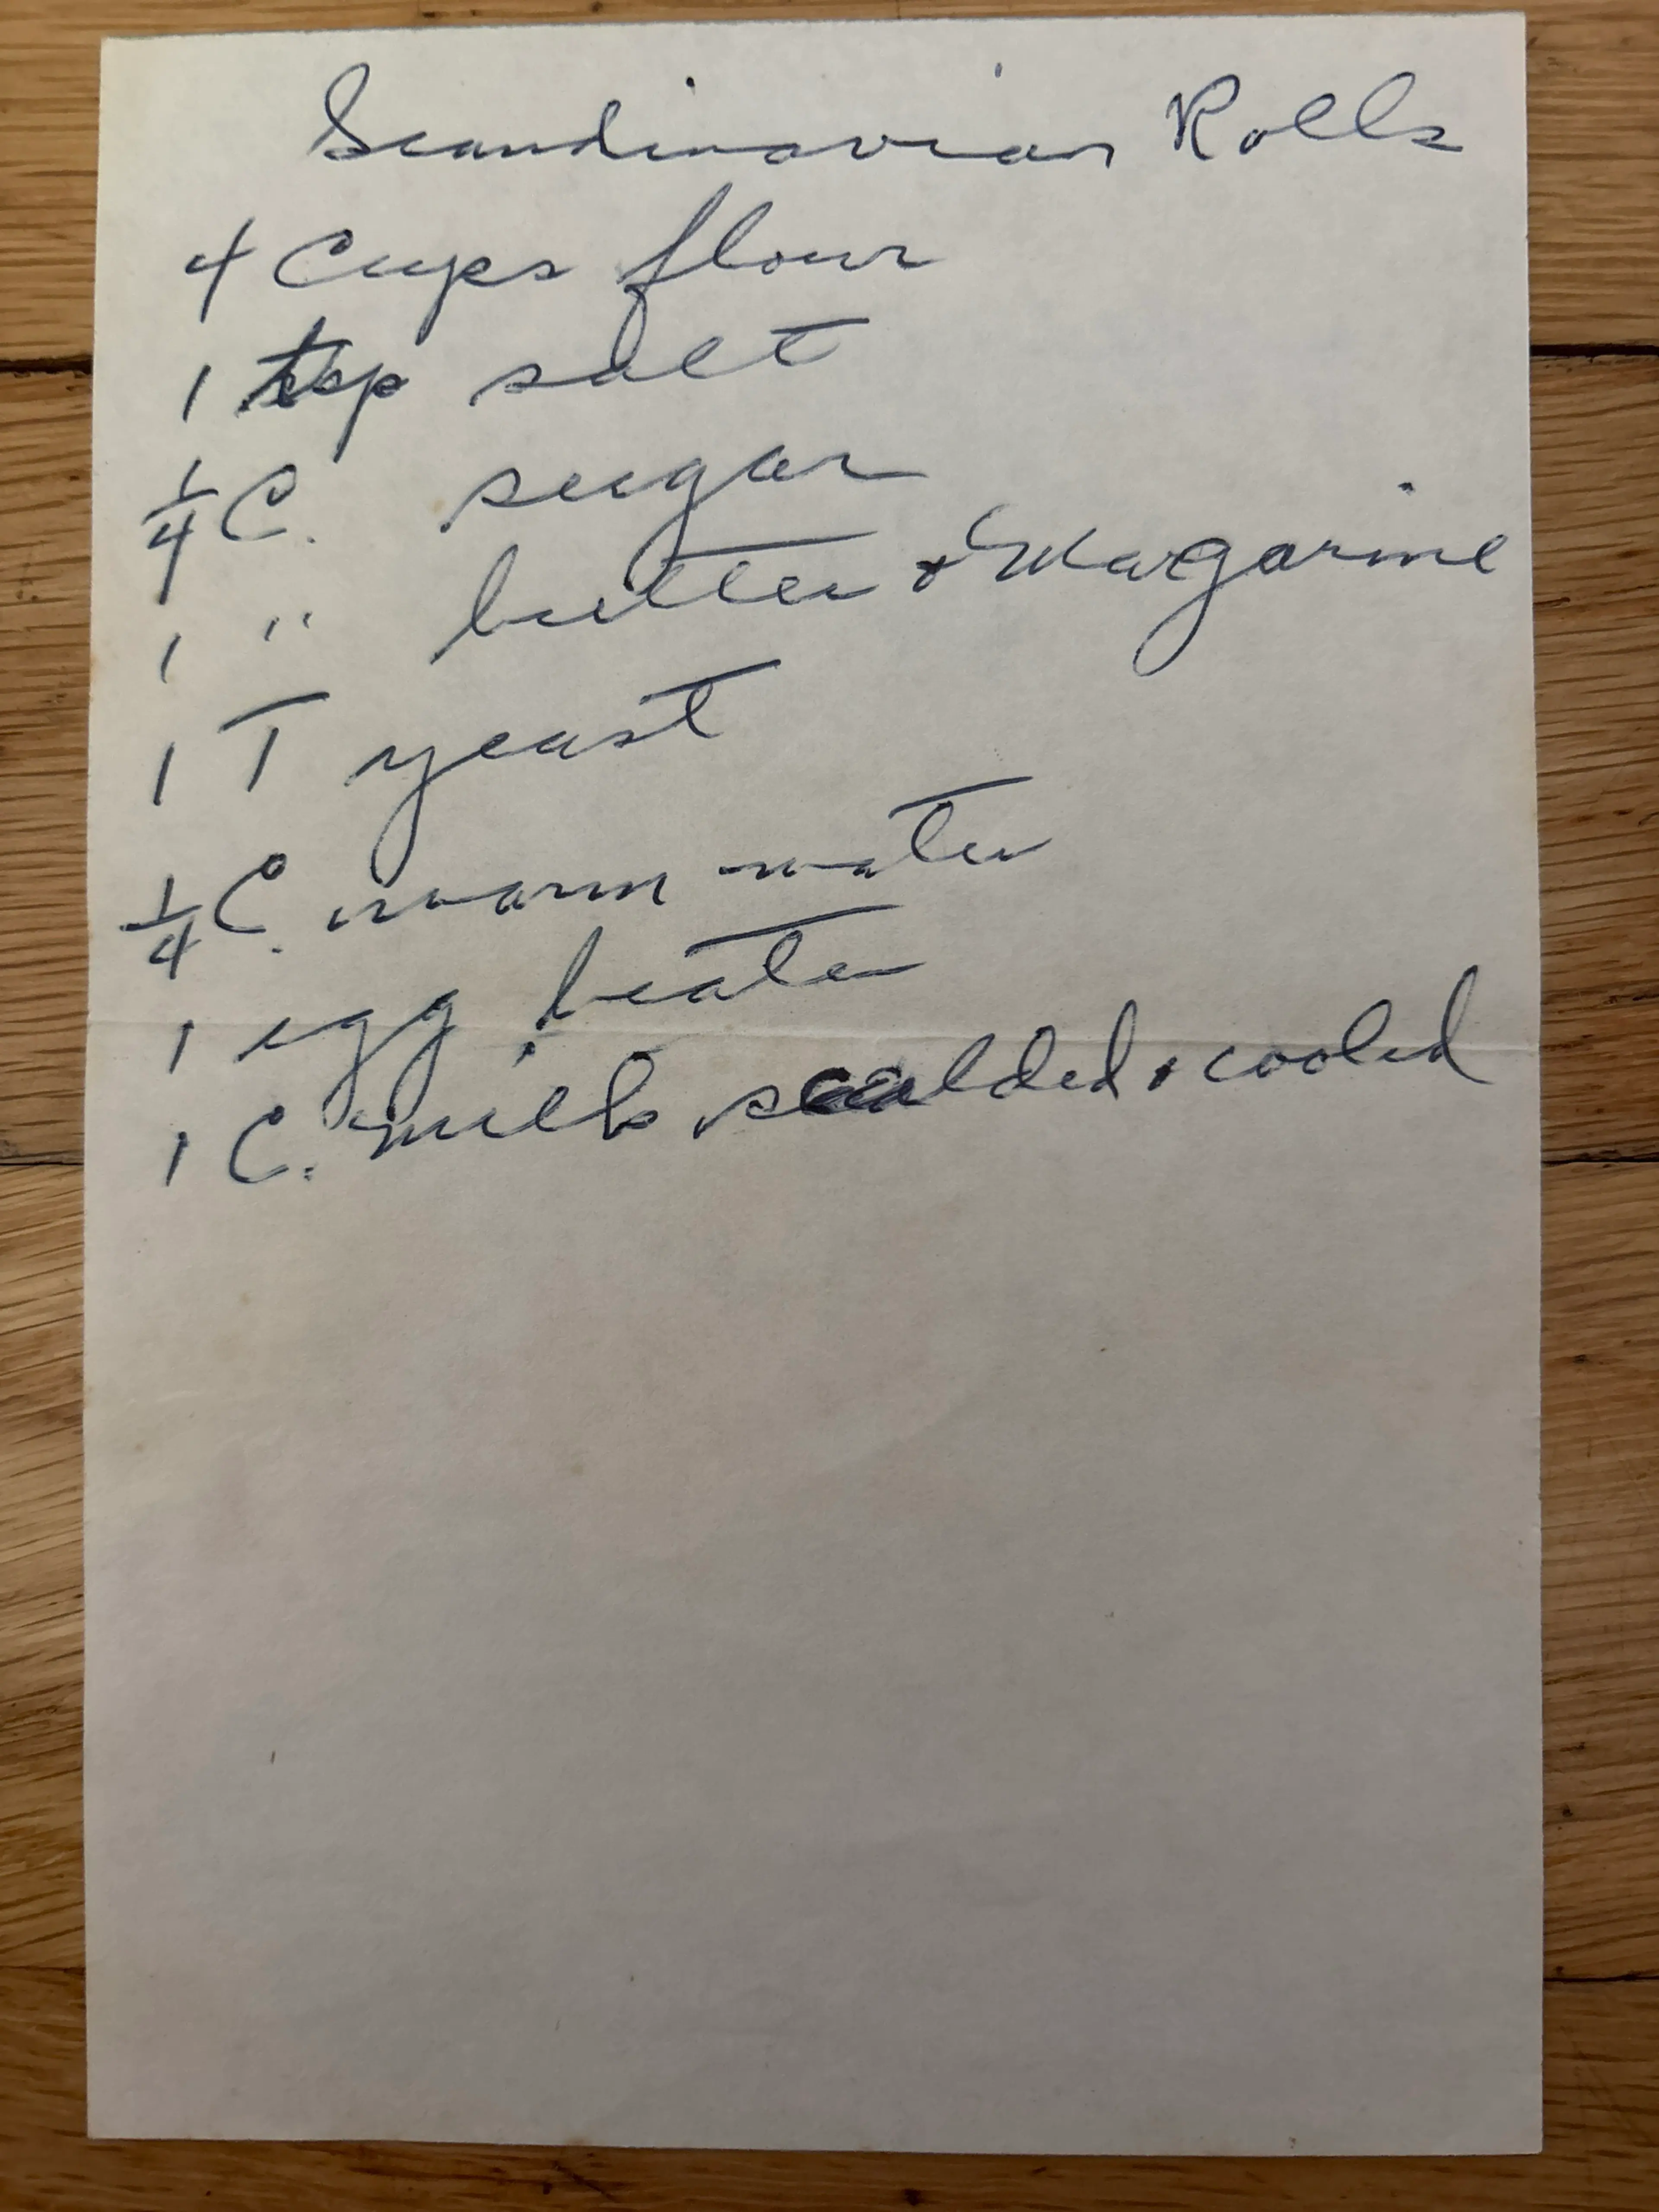 Scandinavian Rolls
4 Cups flour
1 tsp salt
1/4 C. sugar
1 " butter or Margarine
1 T yeast
1/4 C. warm water
1 egg, beaten
1 C. milk, scalded & cooled